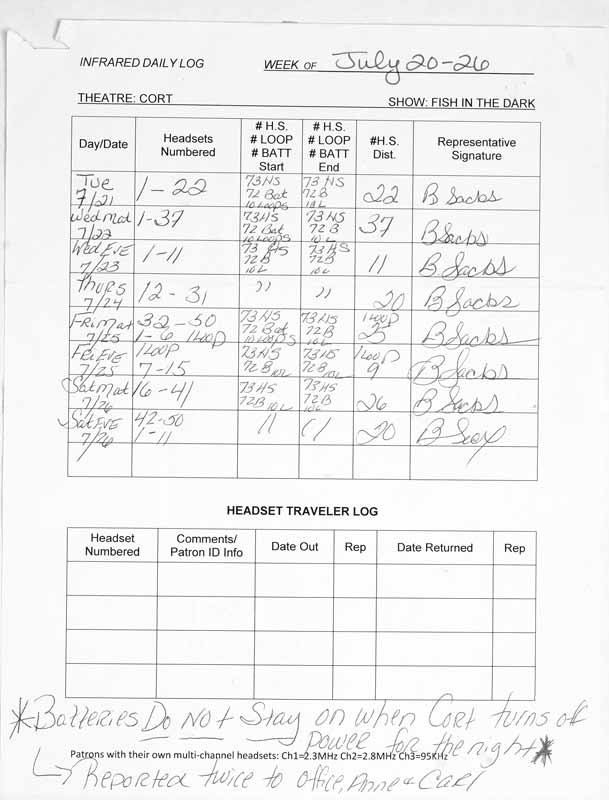 INFRARED DAILY LOG WEEK OF July 20-26
THEATRE: CORT SHOW: FISH IN THE DARK
Day/Date Headsets Numbered # H.S. # LOOP # BATT Start # H.S. # LOOP # BATT End #H.S. Dist. Representative Signature
Tue 7/21 1-22 73HS 72 Bat 10 Loops 73 HS 72B 10L 22 B Sacks
Wed Mat 7/22 1-37 73HS 72 Bat 10 Loops 73HS 72 B 10 L 37 B Sacks
Wed Eve 7/23 1-11 73 HS 72B 10L 73HS 72B 10L 11 B Sacks
Thurs 7/24 12-31 " " 20 B Sacks
Fri Mat 7/25 32-50 1-6 1 Loop 73HS 72 Bat 10 Loops 73HS 72B 10L 1 Loop 25 B Sacks
Fri Eve 7/25 1 Loop 7-15 73HS 72B 10L 73HS 72B 10L 1 Loop 9 B Sacks
Sat Mat 7/26 16-41 73HS 72B 10L 73HS 72B 10L 26 B Sacks
Sat Eve 7/26 42-50 1-11 " " 20 B
HEADSET TRAVELER LOG
Headset Numbered Comments/ Patron ID Info Date Out Rep Date Returned Rep
* Batteries Do Not Stay on when Cort turns off
power for the night *
Patrons with their own multi-channel headsets: Ch1=2.3MHz Ch2=2.8MHz Ch3=95KHz
Reported twice to office, Anne & Carl